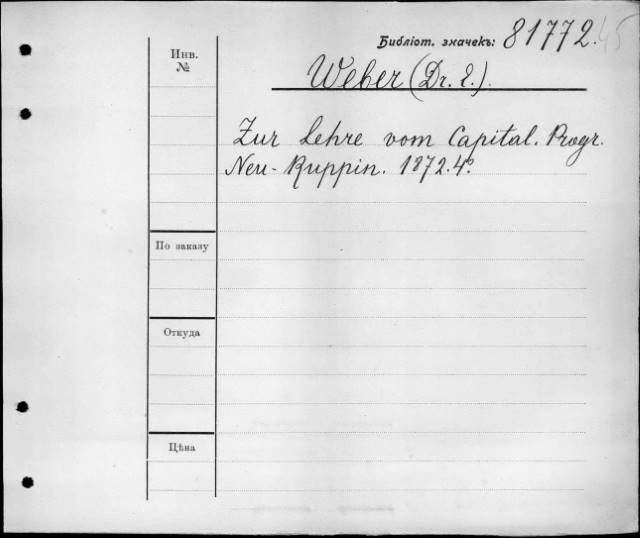 Библіот. значекъ: 81772.45
Инв. №
Weber (Dr. E.).
Zur Lehre vom Capital. Progr.
Neu-Ruppin. 1872. 4°.
По заказу
Откуда
Цѣна